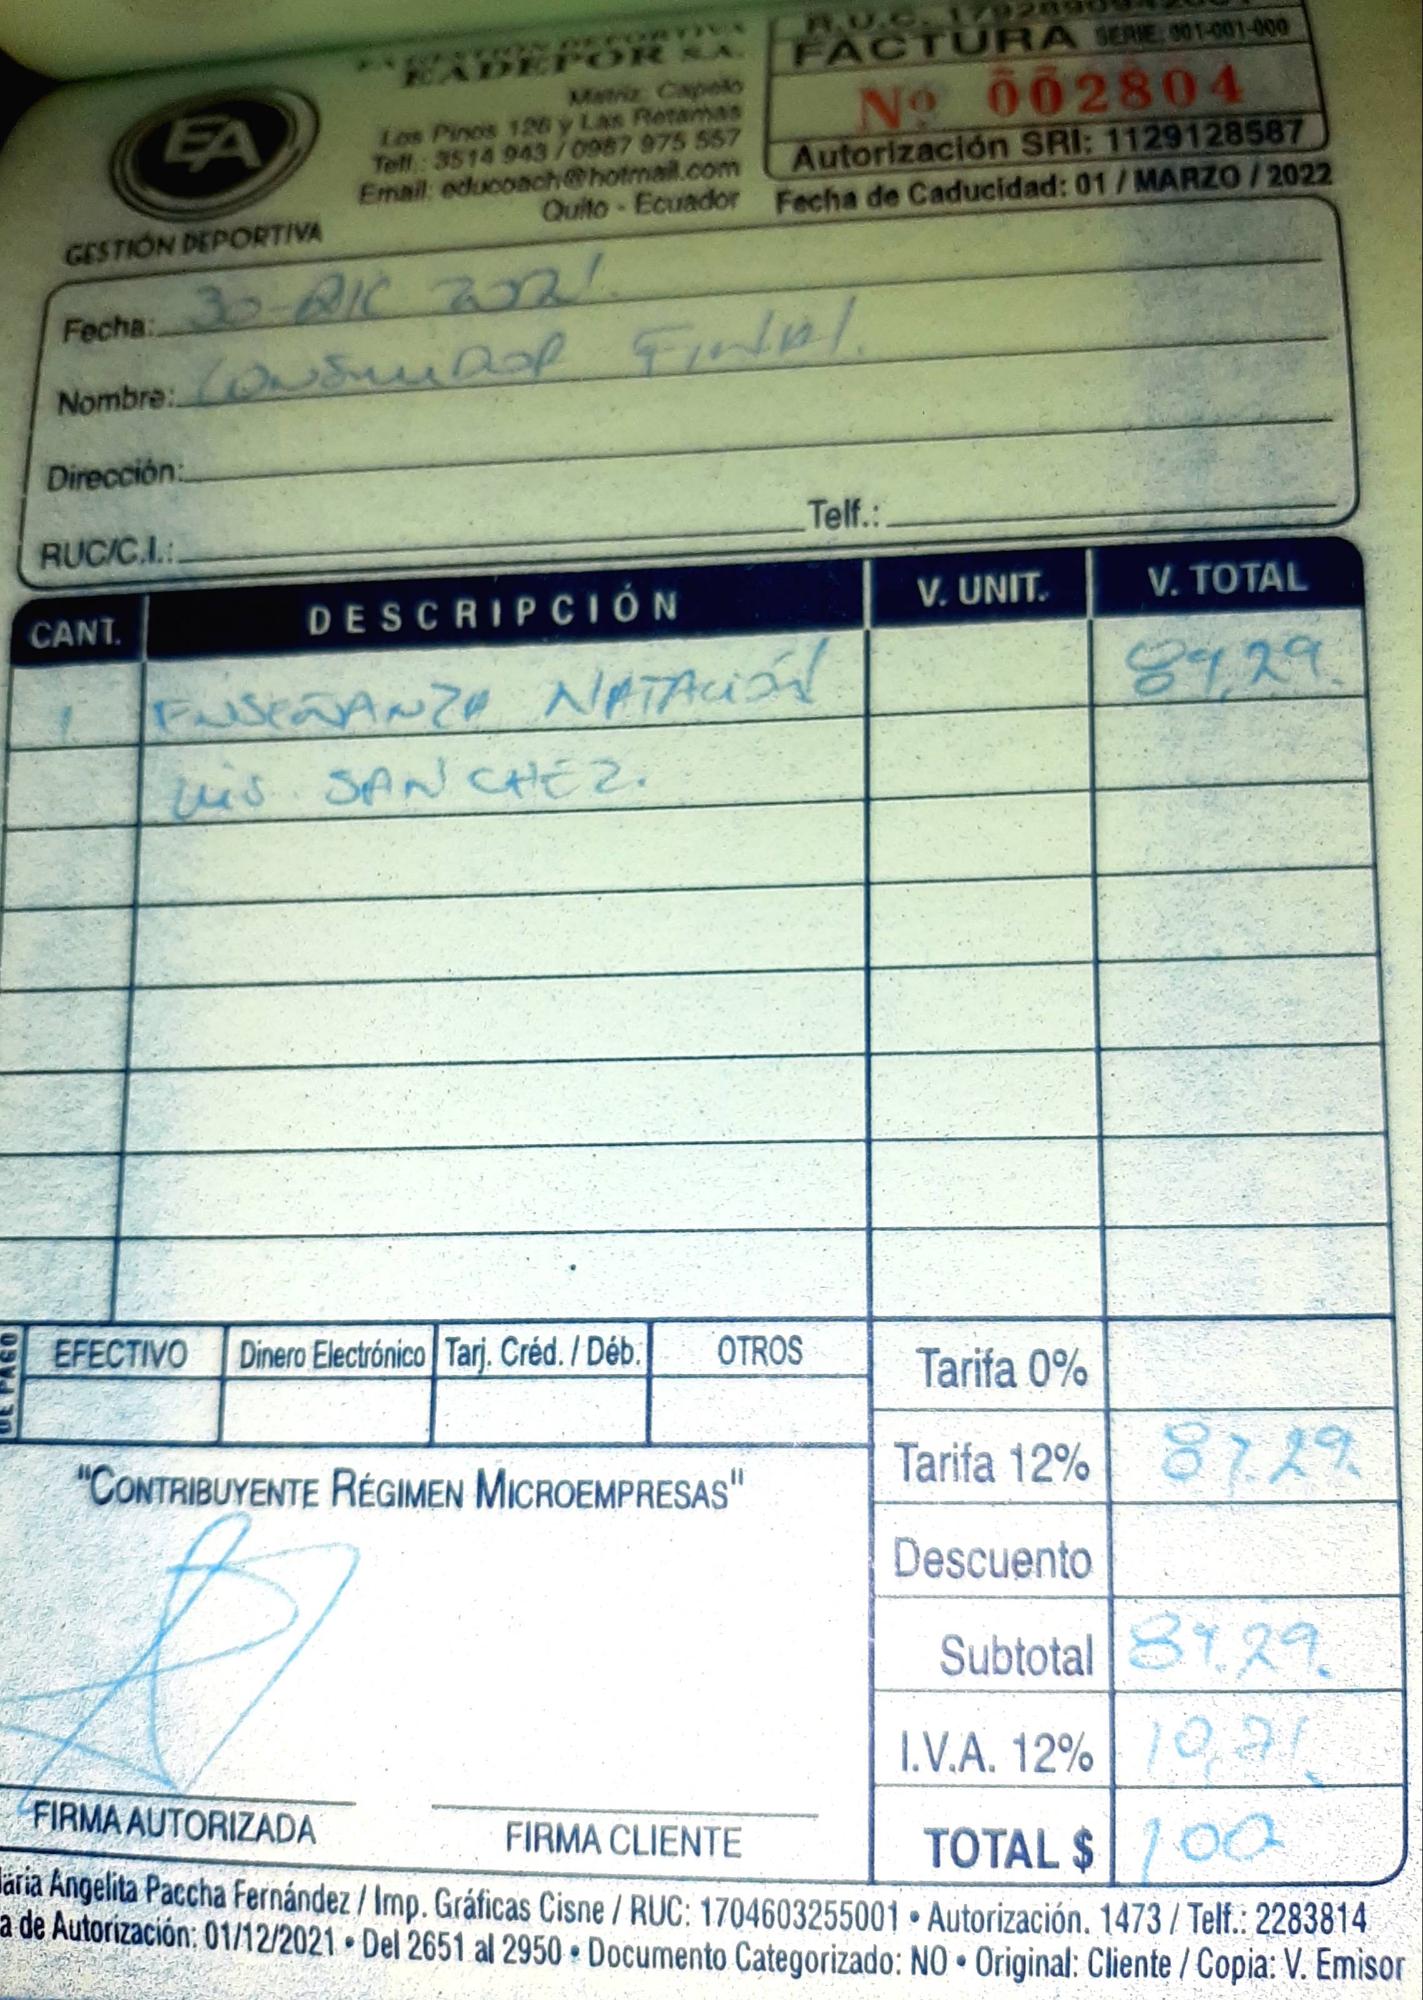 EADEPOR S.A.
Matriz: Capelo
Los Pinos 126 y Las Retamas
Telf.: 3514 943 / 0987 975 557
Email: educoach@hotmail.com
Quito - Ecuador
EA
GESTIÓN DEPORTIVA
R.U.C.
FACTURA SERIE: 001-001-000
Nº 002804
Autorización SRI: 1129128587
Fecha de Caducidad: 01 / MARZO / 2022
Fecha: 30-DIC 2021.
Nombre: CONSUMIDOR FINAL.
Dirección:
RUC/C.I.: Telf.:
CANT. DESCRIPCIÓN V. UNIT. V. TOTAL
1. ENSEÑANZA NATACIÓN 89,29.
LUIS SANCHEZ.
DE PAGO
EFECTIVO Dinero Electrónico Tarj. Créd. / Déb. OTROS
Tarifa 0%
Tarifa 12% 89.29.
"CONTRIBUYENTE RÉGIMEN MICROEMPRESAS"
Descuento
Subtotal 89.29.
I.V.A. 12% 10,71.
TOTAL $ 100
FIRMA AUTORIZADA FIRMA CLIENTE
Angelita Paccha Fernández / Imp. Gráficas Cisne / RUC: 1704603255001 • Autorización. 1473 / Telf.: 2283814
de Autorización: 01/12/2021 • Del 2651 al 2950 • Documento Categorizado: NO • Original: Cliente / Copia: V. Emisor